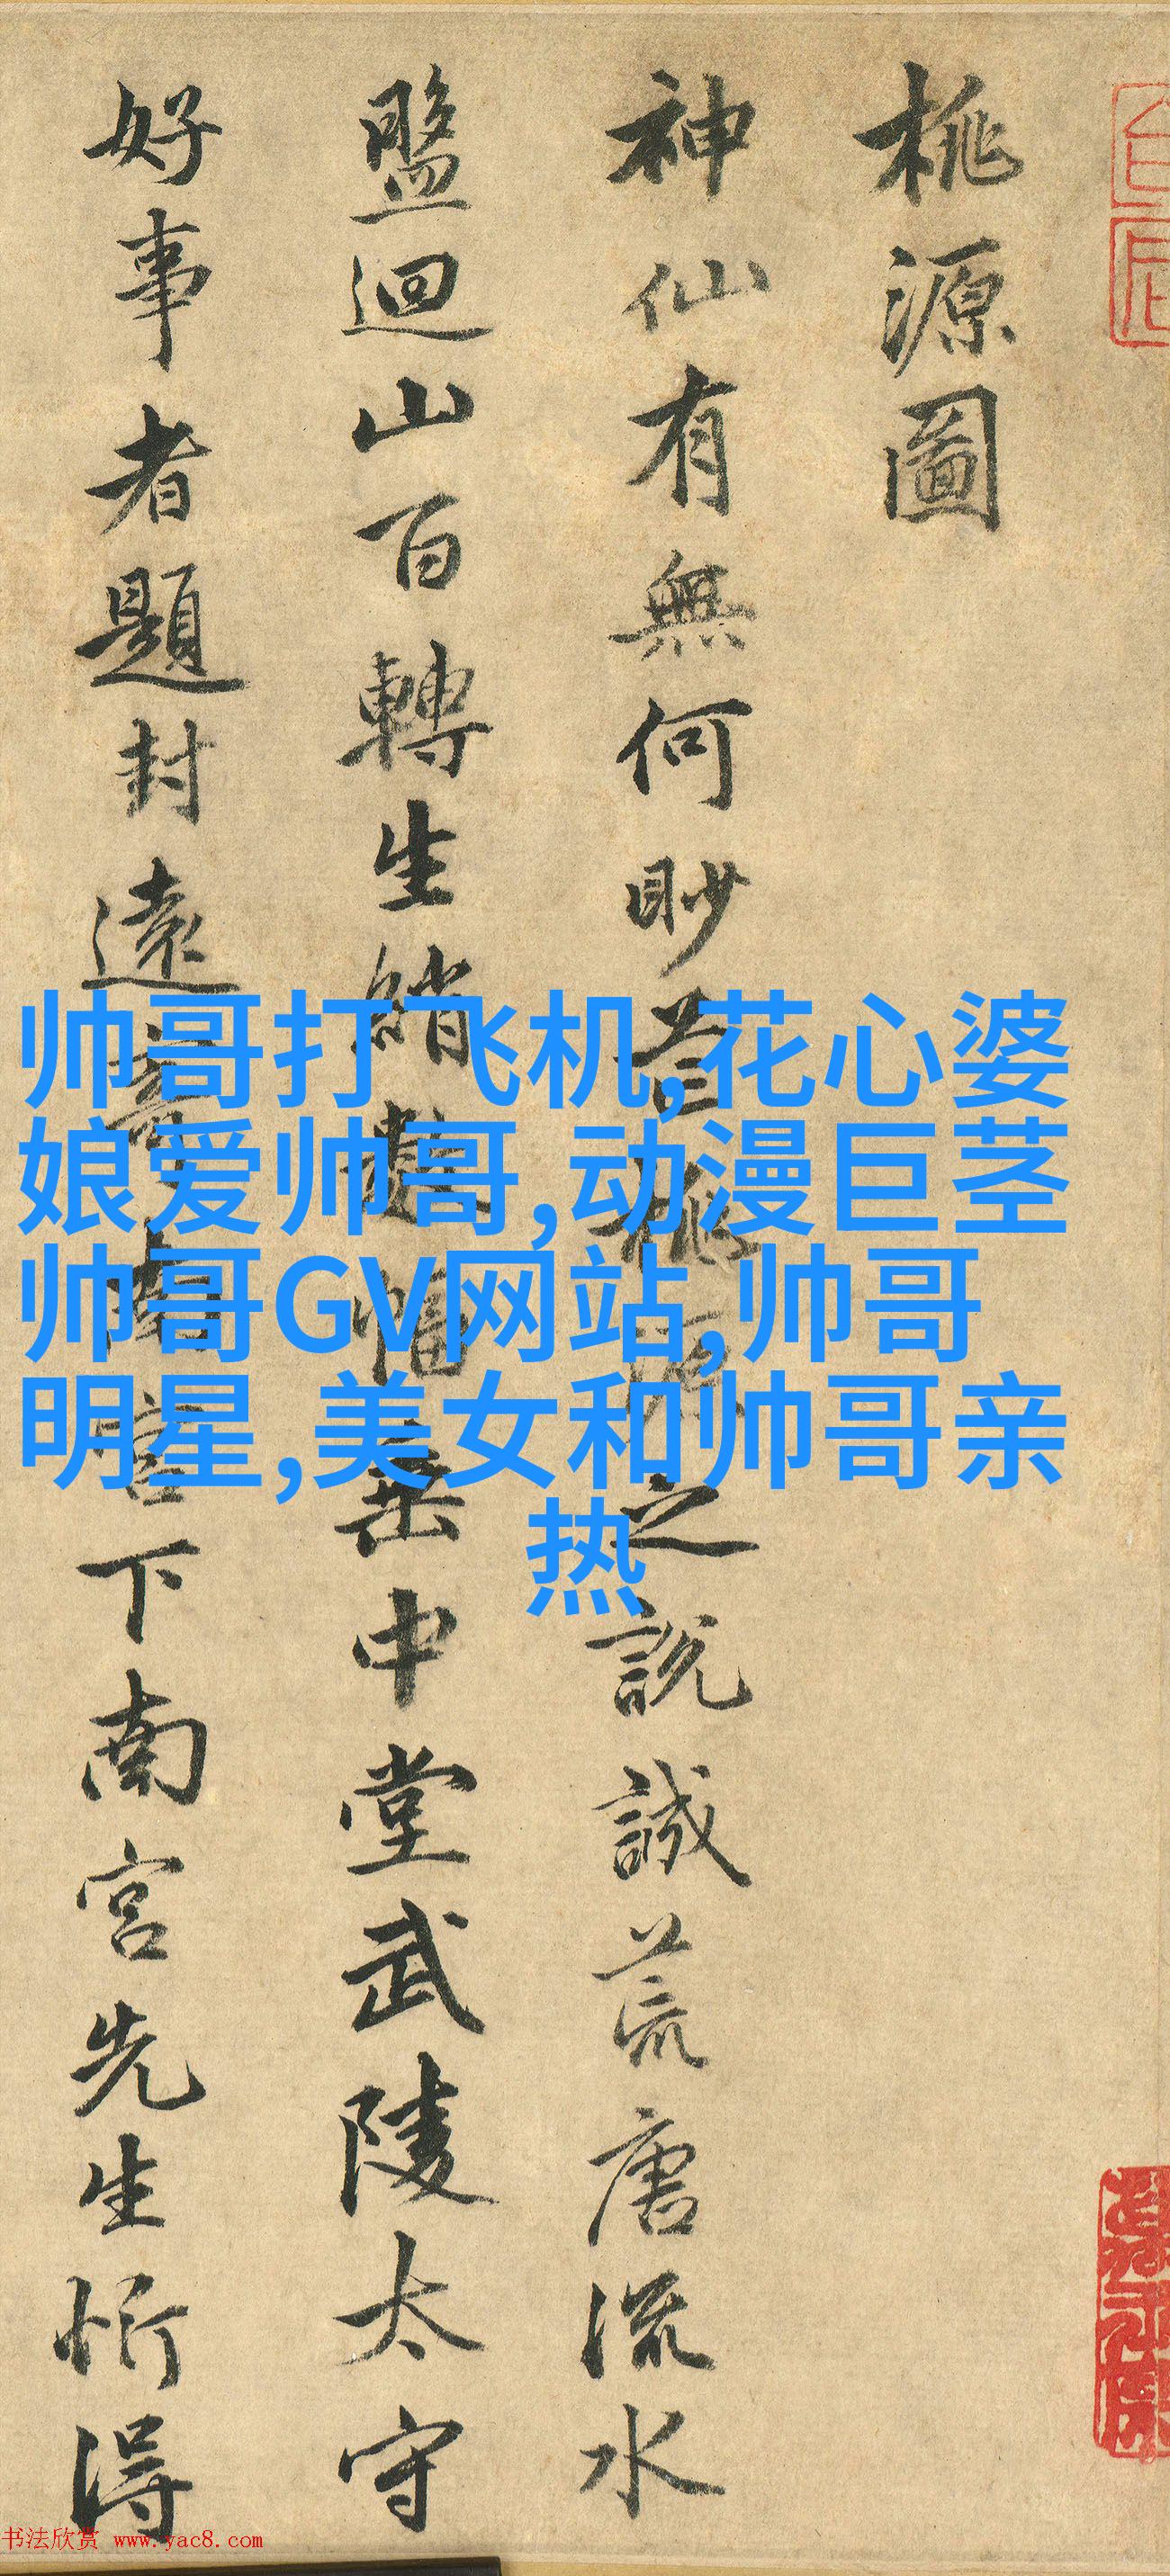 桃源圖
神仙有無何眇芒桃源之說誠荒唐流水
盤迴山百轉生綃數幅垂中堂武陵太守
好事者題封遠寄南宮下南宮先生忻得
帅哥打飞机,花心婆
娘爱帅哥,动漫巨茎
帅哥GV网站,帅哥
明星,美女和帅哥亲
热
书法欣赏 www.yac8.com